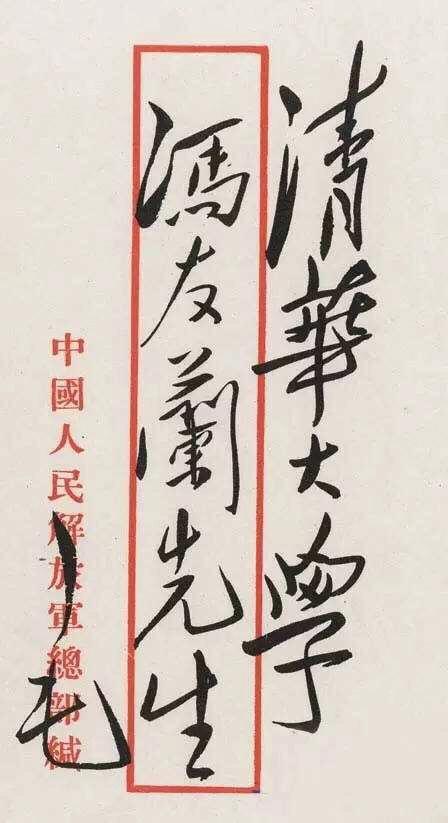 清華大學
馮友蘭先生
中國人民解放軍總部緘
毛